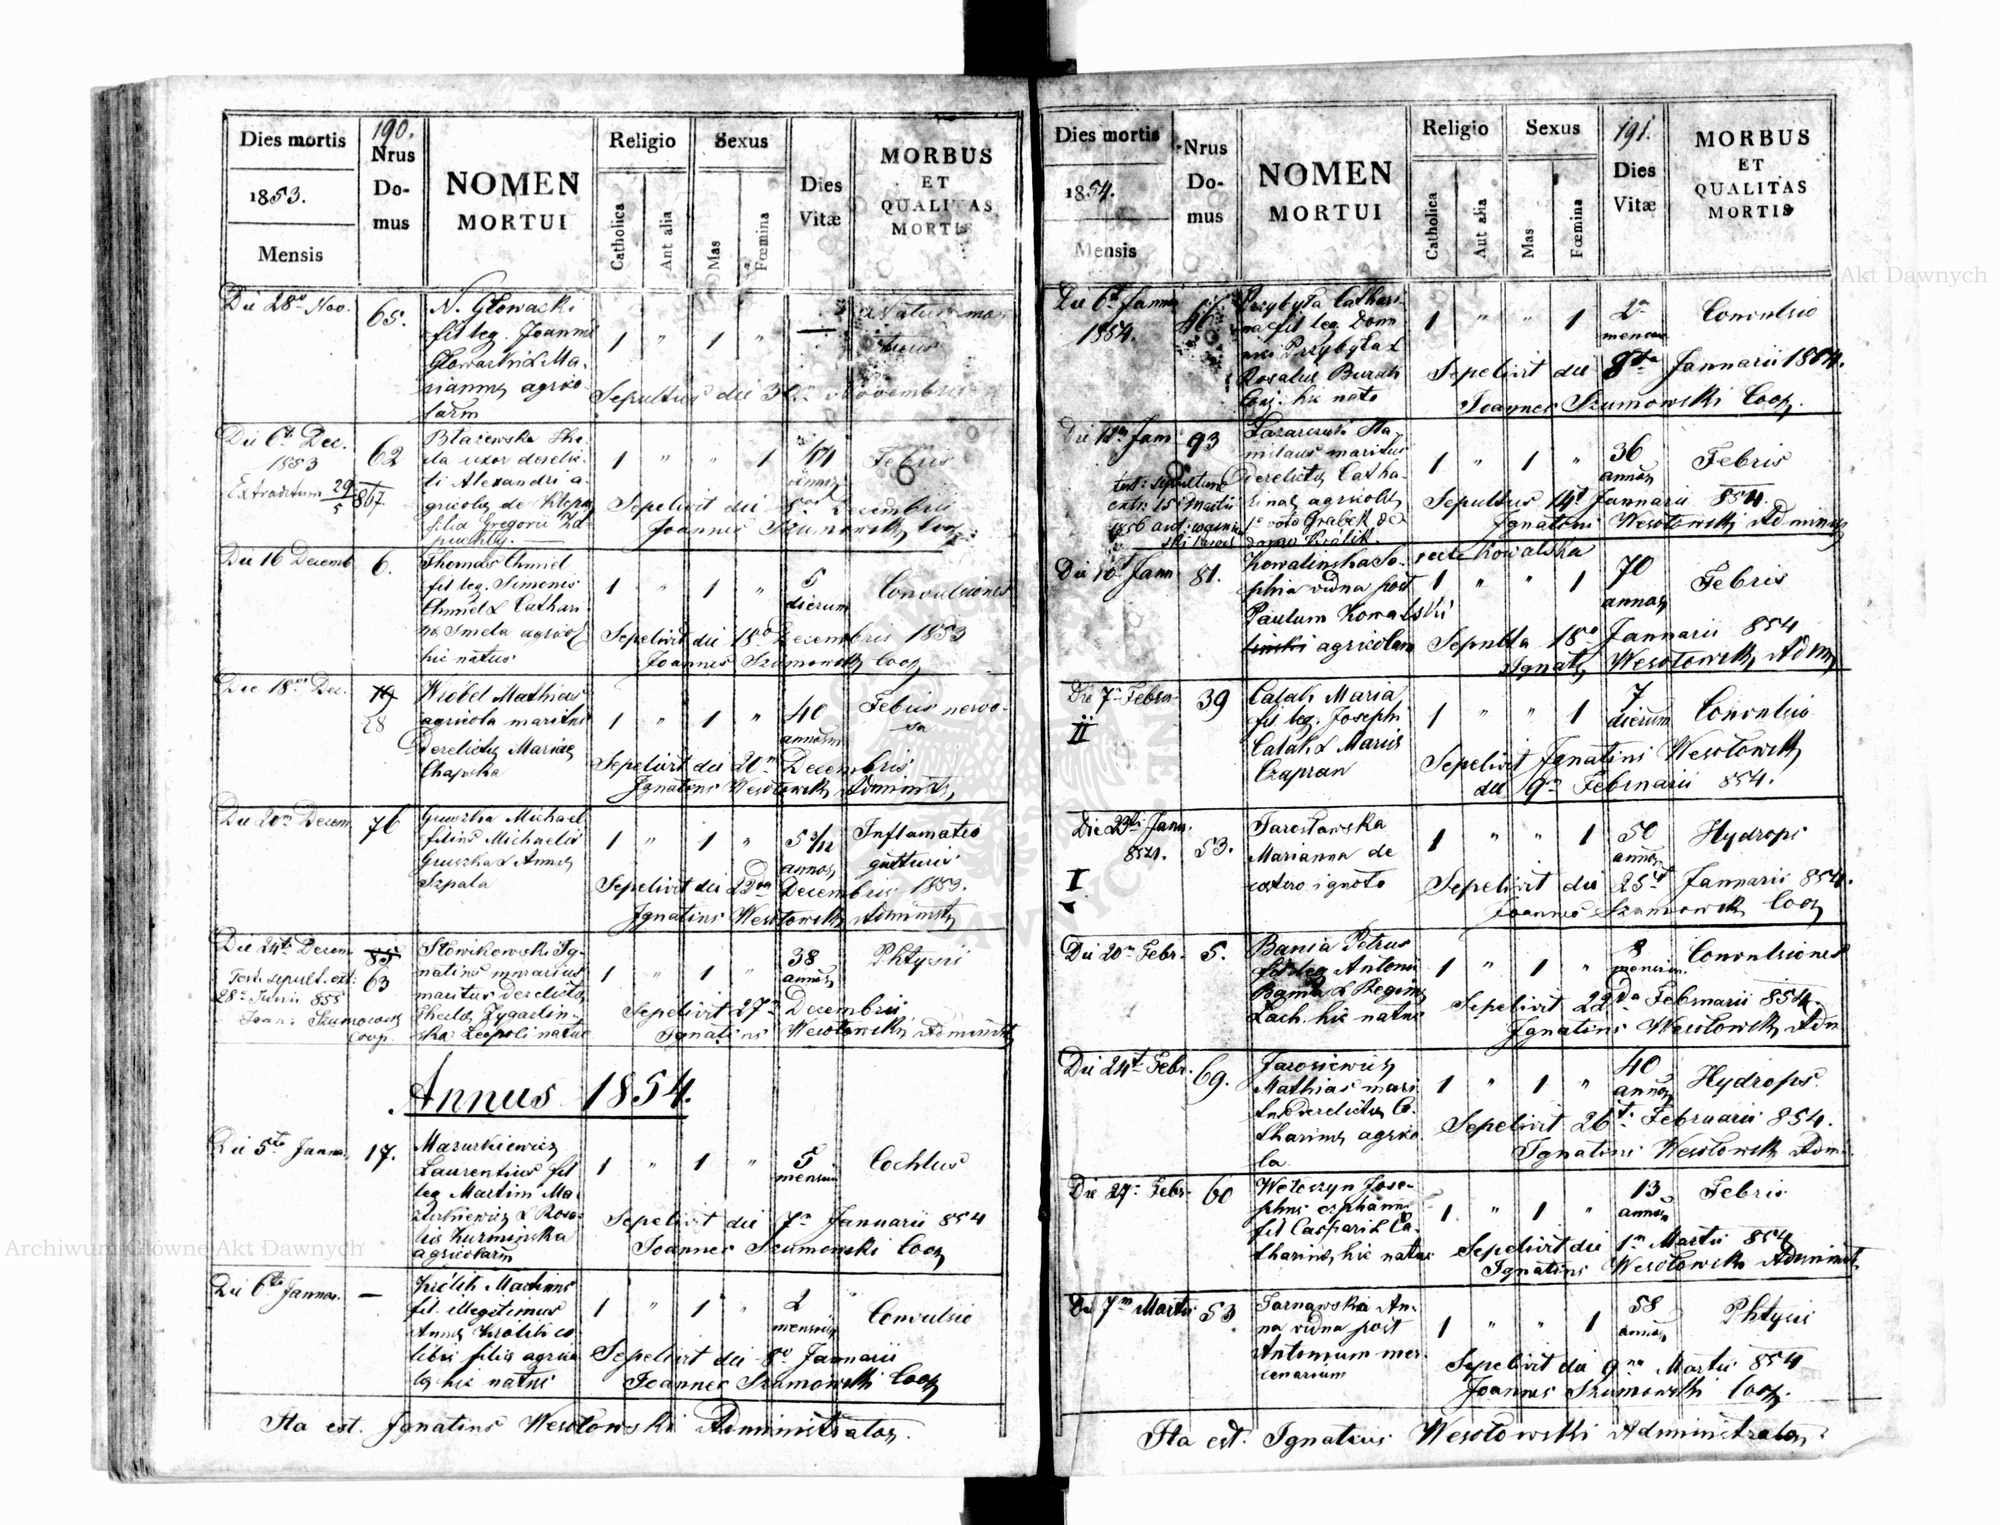 190.
Dies mortis
1853.
Mensis
Nrus Do-
mus
NOMEN
MORTUI
Religio
Catholica
Aut alia
Sexus
Mas
Fœmina
Dies
Vitæ
MORBUS
ET
QUALITAS
MORTIS
Die 28va Nov.
65.
N. Głowacki
fil leg. Joannis
Głowacki & Ma-
riannæ agrico-
larm
1 " 1 "
—
Sepultus die 30 Novembris
Die 6ta Dec.
1853
Extraditum 29/5 867.
62
Błażewska The-
kla uxor derelic-
ti Alexandri a-
gricola de
filia Gregorii
1 " " 1
44
Febris
Sepelivit die Decembris
Joannes Szumowski Coop.
Die 16 Decemb
6.
Thomas Chmiel
fil leg. Simonis
Chmiel & Cathari-
næ Smela agricol
hic natus
1 " 1 "
5
dierum
Convulsiones
Sepelivit die 18va Decembris 1853
Joannes Szumowski Coop
Die 18va Dec.
28
Wróbel Mathias
agricola maritus
Derelictus Mariæ
Chapska
1 " 1 "
40
annorum
Febris nervo-
sa
Sepelivit die 20ma Decembris
Ignatius Wesołowski Administr,
Die 20ma Decem.
76
Gruszka Michael
filius Michaelis
Gruszka & Annæ
Szpala
1 " 1 "
5 2/12
annor,
Inflamatio
gutturis
Sepelivit die 22da Decembris 1853.
Ignatius Wesołowski Administr
Die 24ta Decem.
Test. sepult. ext:
28va Junii 855
Joan: Szumowski
Coop.
85
63
Słowikowski Ig-
natius
maritus derelictus
Theclæ Zygadlin-
ska Leopoli natus
1 " 1 "
38
annor,
Phtysis
Sepelivit 27ma Decembris
Ignatius Wesołowski, Administr
Annus 1854.
Die 5ta Janua.
17.
Mazurkiewicz
Laurentius fil
leg Martini Ma-
zurkiewicz & Rosa-
lia Kuzminska
agricolarm
1 " 1 "
5
mensium
Cochlus
Sepelivit die 7ma Januarii 854
Joannes Szumowski Coop
Die 6ta Januar.
—
Królik Mathias
fil. illegitimus
Annæ Królik cœ-
libis filia agrico
læ hic natus
1 " 1 "
2
mensium
Convulsio
Sepelivit die 8va Januarii
Joannes Szumowski Coop
Ita est. Ignatius Wesołowski Administrator.
191.
Dies mortis
1854.
Mensis
Nrus
Do-
mus
NOMEN
MORTUI
Religio
Catholica
Aut alia
Sexus
Mas
Fœmina
Dies
Vitæ
MORBUS
ET
QUALITAS
MORTIS
Die 6ta Janua
1854.
Przybyła Cathari-
na fil leg. Domi
nici Przybyła &
Rosaliæ Burak
Conj. hic nata
1 " " 1
2
mensium
Convulsio
Sepelivit die 8va Januarii 1854.
Joannes Szumowski Coop.
Die 12ma Jan
93
test: sepultura
extr: 15 Martii
1856
Łazarczuk Sta-
nislaus maritus
Derelictus Catha-
rinæ agricola
1o voto Grabek de
domo Królik.
1 " 1 "
36
annor,
Febris
Sepultus 14ta Januarii 854.
Ignatius Wesołowski Administr
Die 16ta Jann.
81.
Kowalinska So- recte Kowalska
phia vidua post
Paulum Kowalski
linski agricolam
1 " " 1
70
annor,
Febris
Sepulta 18va Januarii 854
Ignatz Wesołowski Adm,
Die 7ma Febru.
II
39
Calak Maria
fil leg. Josephi
Calak & Mariæ
Czapran
1 " " 1
7
dierum
Convulsio
Sepelivit Ignatius Wesołowski
die 9na Februarii 854.
Die 23tia Janu.
854.
I
53.
Jarosławska
Marianna de
cætero ignota
1 " " 1
50
annor,
Hydrops
Sepelivit die 25ta Januarii 854.
Joannes Szumowski Coop
Die 20ma Febr.
5.
Bania Petrus
fil leg Antonii
Bania & Reginæ
Lach. hic natus
1 " 1 "
8
mensium.
Convulsiones
Sepelivit 22da Februarii 854.
Ignatius Wesołowski Adm
Die 24ta Febr.
69.
Jarosiewicz
Mathias mari
tus derelictus Ca-
tharinæ agrico-
la
1 " 1 "
40
annor,
Hydrops.
Sepelivit 26ta Februarii 854.
Ignatius Wesołowski Adm.
Die 27ma Febr.
60
Wołoszyn Jose-
phus orphanus
fil Caspari & Ca-
tharinæ hic natus
1 " 1 "
13
annor,
Febris
Sepelivit die 1ma Martii 854
Ignatius Wesołowski Administ.
Die 7ma Martii
53
Tarnawska An-
na vidua post
Antonium mer-
cenarium
1 " " 1
58
annor,
Phtysis
Sepelivit die 9na Martii 854
Joannes Szumowski Coop.
Ita est. Ignatius Wesołowski Administrator,
Archiwum Główne Akt Dawnych
Archiwum Główne Akt Dawnych